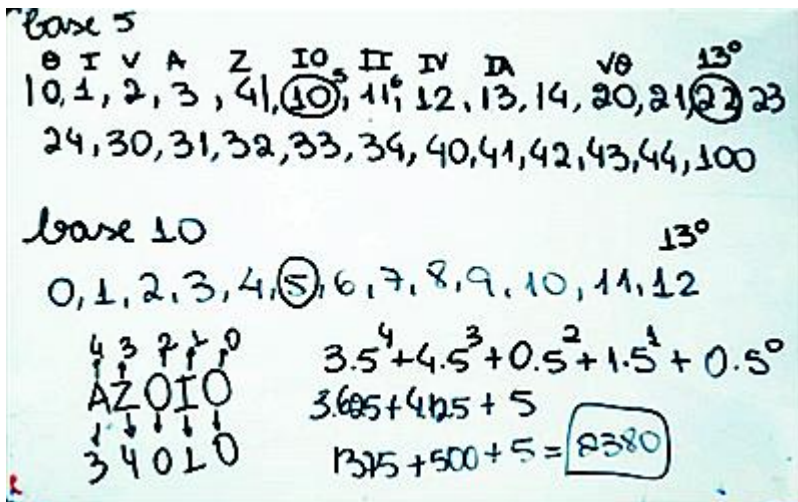 base 5
θ I V A Z IO II IV IA Vθ 13º
0, 1, 2, 3, 4, 10, 5 11, 6 12, 13, 14, 20, 21, 22, 23
24, 30, 31, 32, 33, 34, 40, 41, 42, 43, 44, 100
base 10
13º
0, 1, 2, 3, 4, 5, 6, 7, 8, 9, 10, 11, 12
4 3 2 1 0
AZOIO
3 4 0 1 0
3.5⁴+4.5³+0.5²+1.5¹+0.5⁰
3.625+4.125+5
1375+500+5= 2380